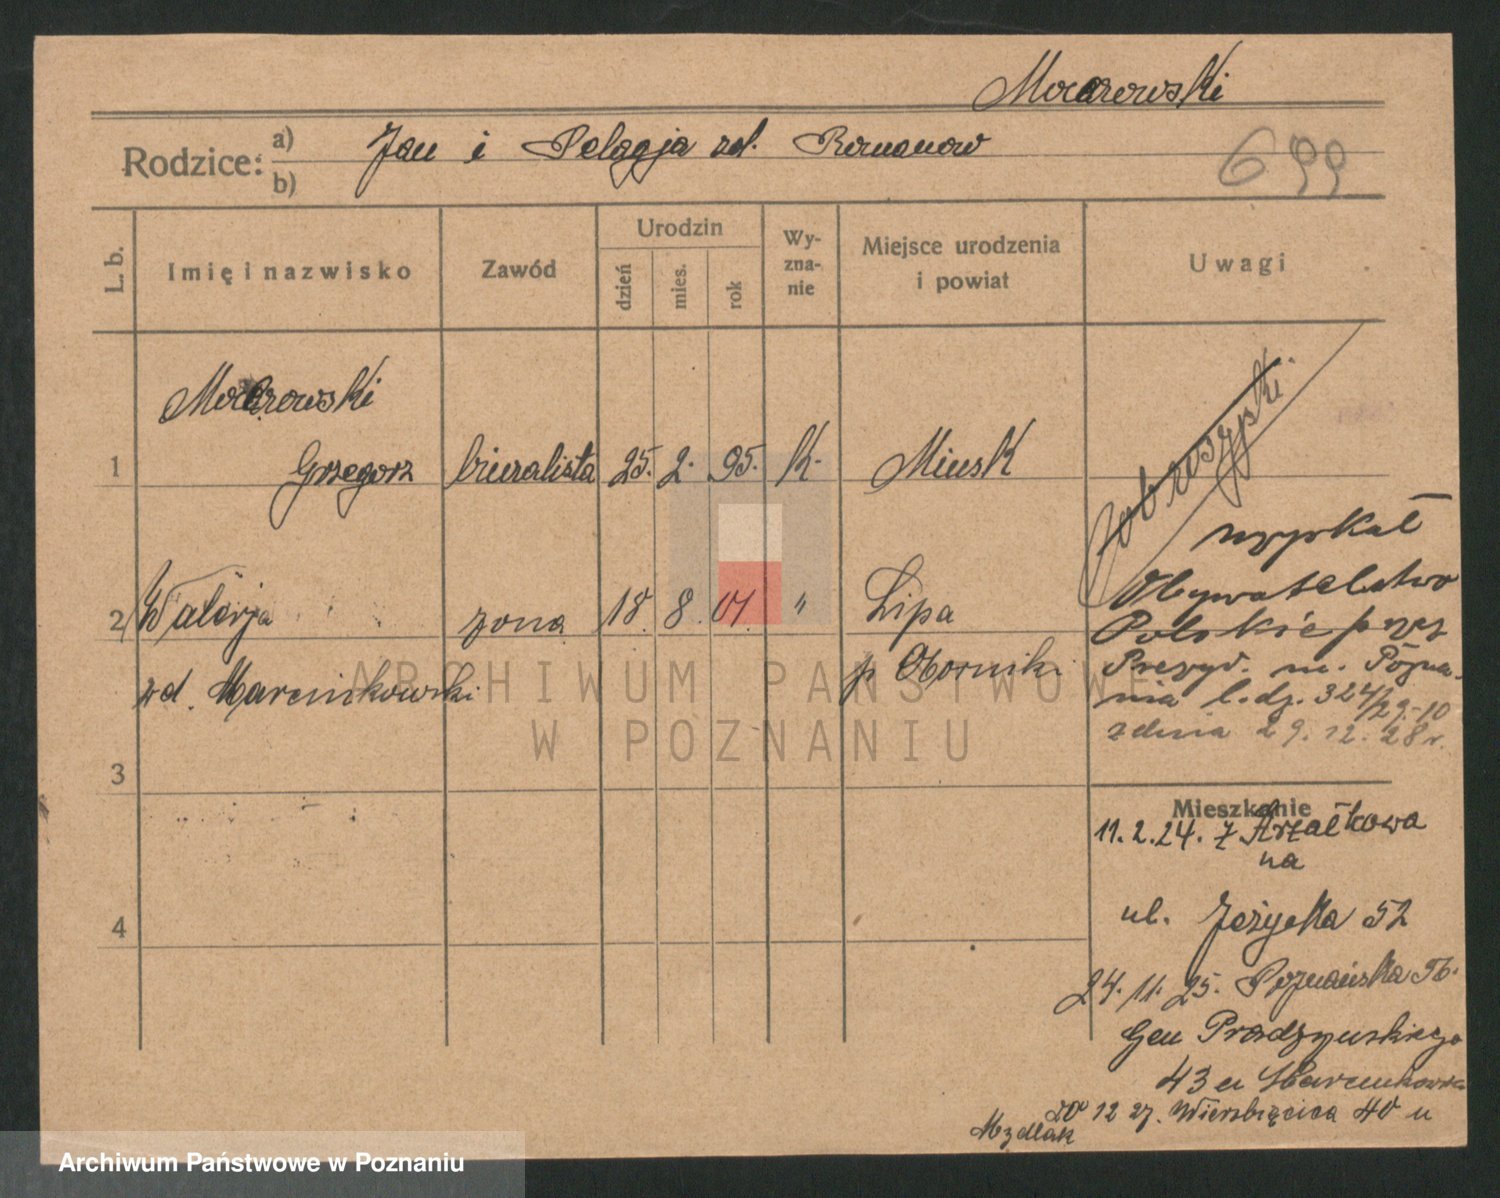 Mocarowski
Rodzice: a) b) Jan i Pelagja zd. Romanow
699
L. b.
Imię i nazwisko
Zawód
Urodzin
dzień
mies.
rok
Wy-
zna-
nie
Miejsce urodzenia
i powiat
Uwagi
Mocarowski
1 Grzegorz biuralista 25. 2. 95. K. Minsk
2 Walerja żona 18 8. 01. " Lipa
zd. Marcinkowski p Oborniki
3
4
uzyskał
Obywatelstwo
Polskie przez
Prezyd. m. Pozna-
nia l.dz. 324/29-10
z dnia 29.12.28 r.
Mieszkanie
11.2.24. z Strzałkowa
na
ul. Jeżycka 52
24. 11. 25. Poznańska 56.
Gen Prądzyńskiego
43 u
20 12 27. Wierzbięcica 40 u
ARCHIWUM PAŃSTWOWE
W POZNANIU
Archiwum Państwowe w Poznaniu